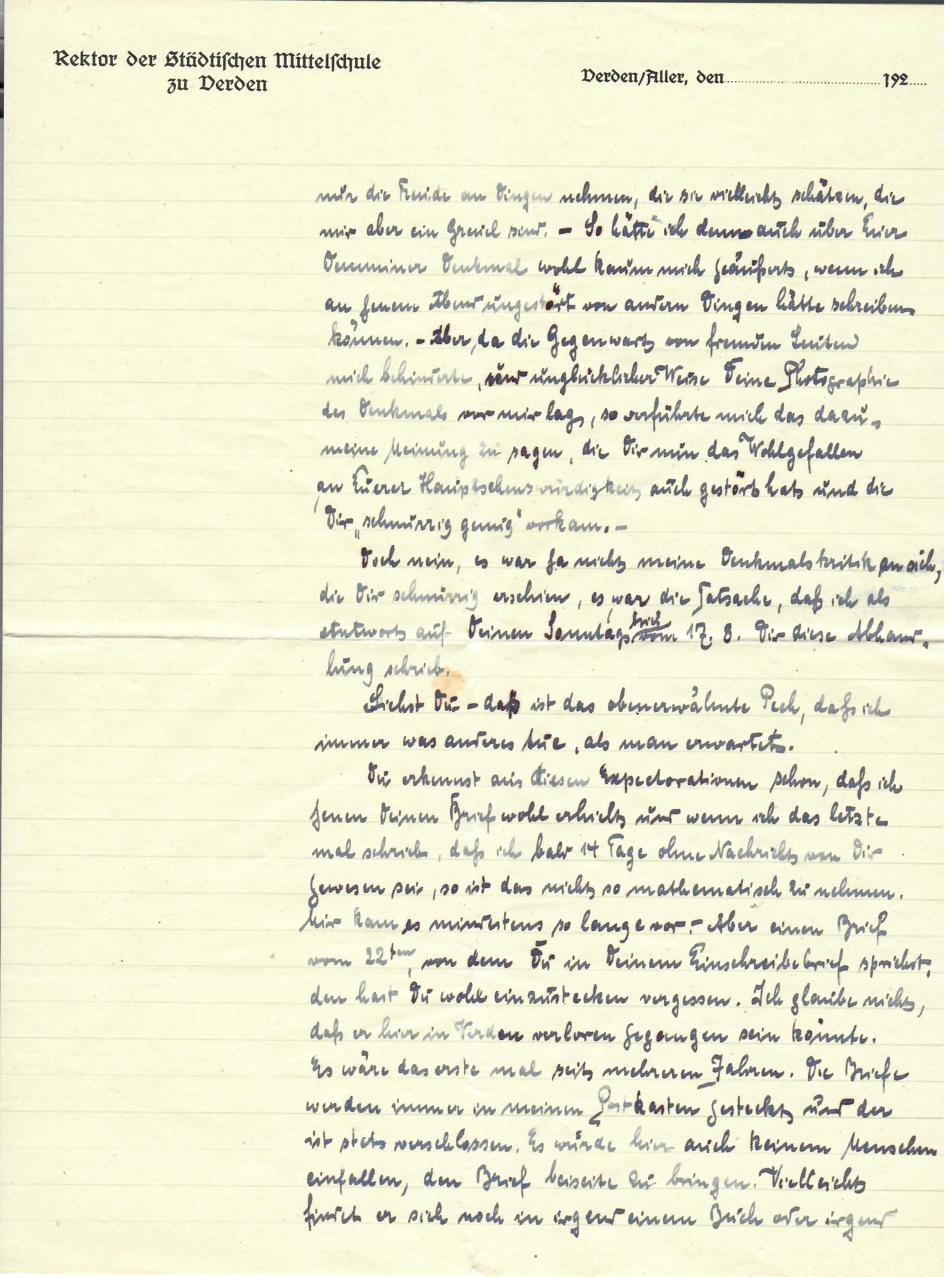 Rektor der Städtischen Mittelschule
zu Verden
Verden/Aller, den 192
nur die Freude an Dingen nehmen, die sie vielleicht schätzen, die
mir aber ein Greuel sind. – So hätte ich denn auch über Euer
Demminer Denkmal wohl kaum mich geäußert, wenn ich
an jenem Abend ungestört von andern Dingen hätte schreiben
können. – Aber, da die Gegenwart von fremden Leuten
mich behinderte, und unglücklicher Weise Deine Photographie
des Denkmals vor mir lag, so verführte mich das dazu,
meine Meinung zu sagen, die Dir nun das Wohlgefallen
an Eurer Hauptsehenswürdigkeit auch gestört hat und die
Dir „schnurrig genug" vorkam. –
Doch nein, es war ja nicht meine Denkmalskritik an sich,
die Dir schnurrig erschien, es war die Tatsache, daß ich als
Antwort auf Deinen Sonntagsbrief vom 17. 8. Dir diese Abhand-
lung schrieb.
Siehst Du – das ist das obenerwähnte Pech, daß ich
immer was anderes tue, als man erwartet.
Du erkennst aus diesen Expectorationen schon, daß ich
jenen Deinen Brief wohl erhielt und wenn ich das letzte
mal schrieb, daß ich bald 14 Tage ohne Nachricht von Dir
gewesen sei, so ist das nicht so mathematisch zu nehmen.
Mir kam es mindestens so lange vor. – Aber einen Brief
vom 22ten, von dem Du in Deinem Einschreibebrief sprichst,
den hast Du wohl einzustecken vergessen. Ich glaube nicht,
daß er hier in Verden verloren gegangen sein könnte.
Es wäre das erste mal seit mehreren Jahren. Die Briefe
werden immer in meinen Postkasten gesteckt und der
ist stets verschlossen. Es würde hier auch keinem Menschen
einfallen, den Brief beiseite zu bringen. Vielleicht
findet er sich noch in irgend einem Buch oder irgend